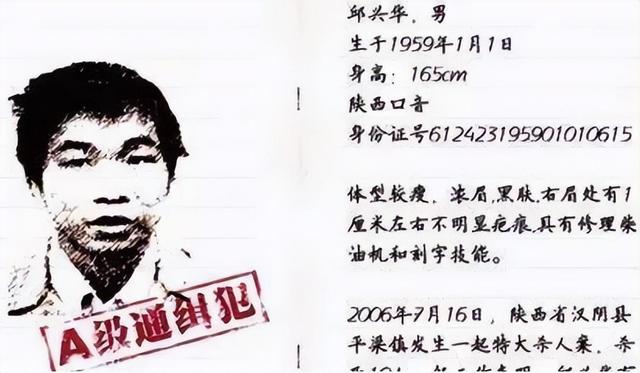 邱兴华，男
生于1959年1月1日
身高：165cm
陕西口音
身份证号612423195901010615
体型较瘦，浓眉,黑肤,右眉处有1
厘米左右不明显疤痕,具有修理柴
油机和刻字技能。
2006年7月16日，陕西省汉阴县
平梁镇发生一起特大杀人案。杀
A级通缉犯